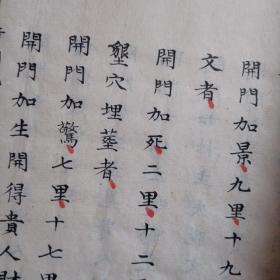 開門加景九里十九
文者
開門加死二里十二
墾穴埋塟者
開門加驚七里十七里
開門加生開得貴人財